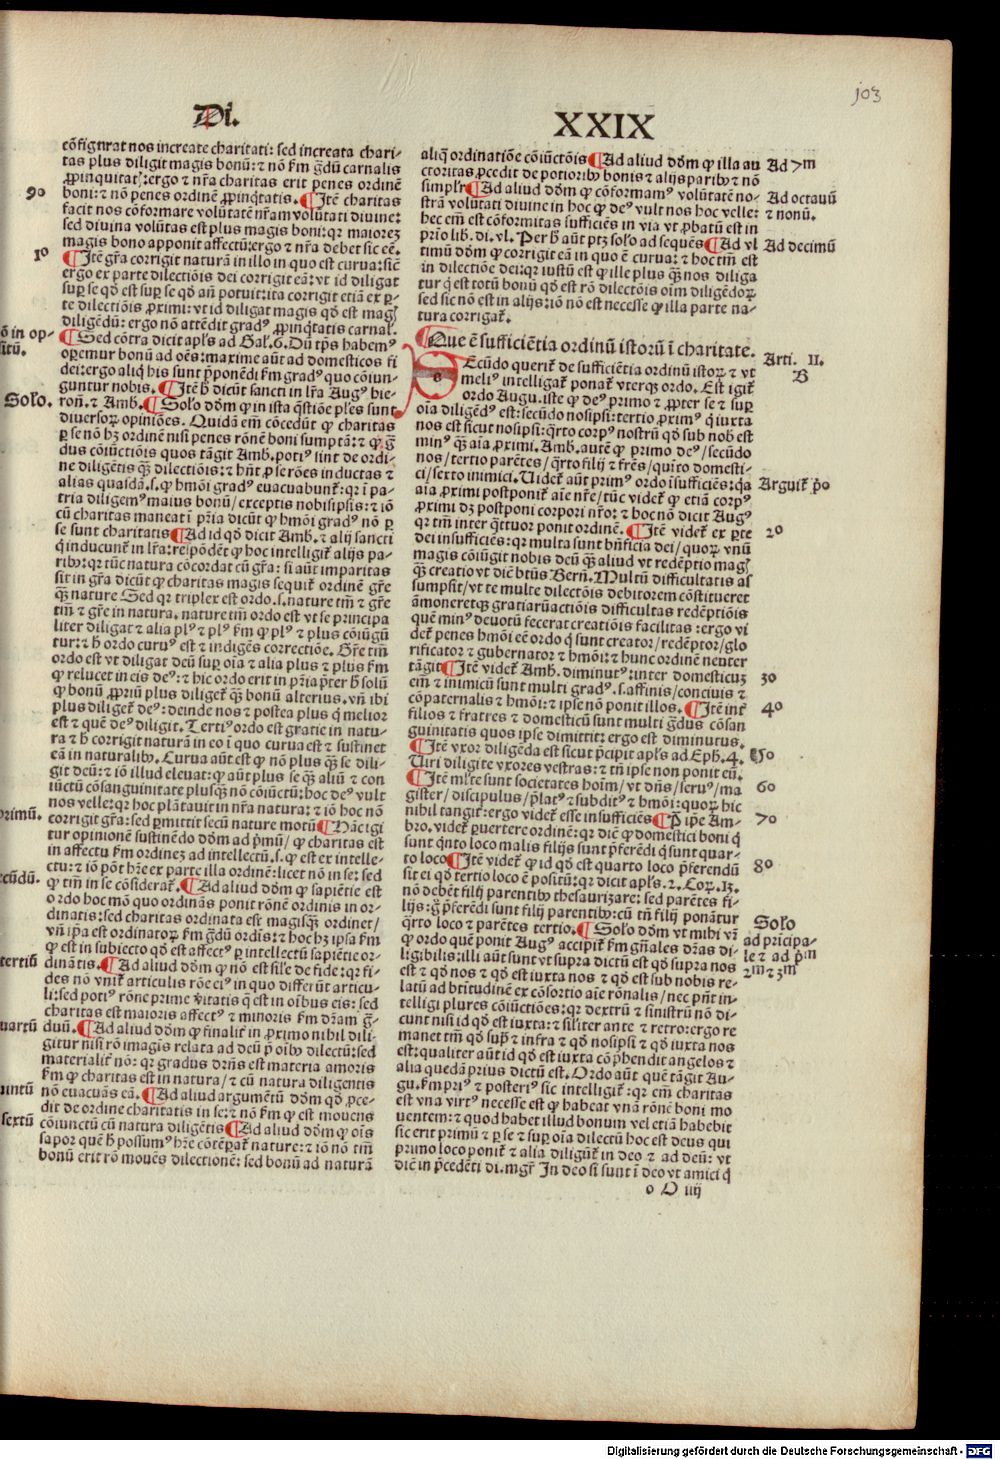 103
Di.
XXIX
cōfigurat nos increate charitati: sed increata chari-
tas plus diligit magis bonū: ⁊ nō ẜm gͣdū carnalis
ꝓpinquitatꝭ: ergo ⁊ nrͣa charitas erit penes ordinē
boni: ⁊ nō penes ordinē ꝓpinqͥtatis. ¶Itē charitas
facit nos cōformare volūtatē nrͣam volūtati diuine:
sed diuina volūtas est plus magis boni: qꝛ maiorez
magis bono apponit affectū: ergo ⁊ nrͣa debet sic eē.
¶Itē gr̄a corrigit naturā in illo in quo est curua: sicͥ
ergo ex parte dilectiōis dei corrigit eā: vt id diligat
suꝑ se qd̓ est suꝑ se qd̓ añ potuit: ita corrigit etiā ex ꝑ-
te dilectiōis ꝓximi: vt id diligat magis qd̓ est magꝭ
diligēdū: ergo nō attēdit gradꝰ ꝓpinqͥtatis carnal̓.
¶Sed cōtra dicit apl̓s ad Gal̓.6. Dū tp̄s habemꝰ
oꝑemur bonū ad oēs: maxime aūt ad domesticos fi
dei: ergo aliqͥ his sunt p̄ponēdi ẜm gradꝰ quo cōiun-
guntur nobis. ¶Itē ħ dicūt sancti in lrͣa Augꝰ hie-
roñ. ⁊ Amb. ¶Solo dōm ꝙ in ista qͣstiōe pl̓es sunt
diuersoꝝ opiniōes. Quidā em̄ cōcedūt ꝙ charitas
ꝑ se nō hꝫ ordinē nisi penes rōnē boni sumptā: ⁊ ꝙ gͣ
dus cōiūctiōis quos tāgit Amb. potiꝰ sint de ordi-
ne diligētis qͣꝫ dilectiōis: ⁊ hn̄t ꝑ se rōes inductas ⁊
alias quasdā .s. ꝙ hmōi gradꝰ euacuabunt̄: qꝛ ī pa-
tria diligemꝰ maius bonū/ exceptis nobisipsis: ⁊ iō
cū charitas maneat ī pr̄ia dicūt ꝙ hmōi gradꝰ nō ꝑ
se sunt charitatis ¶Ad id qd̓ dicit Amb. ⁊ alij sancti
qͥ inducunt̄ in lrͣa: respōdēt ꝙ hoc intelligit̄ alijs pa-
ribꝰ: qꝛ tūc natura cōcordat cū gr̄a: si aūt imparitas
sit in gr̄a dicūt ꝙ charitas magis sequit̄ ordinē gr̄e
qͣꝫ nature Sed qꝛ triplex est ordo .s. nature tm̄ ⁊ gr̄e
tm̄ ⁊ gr̄e in natura. nature tm̄ ordo est vt se principa
liter diligat ⁊ alia plꝰ ⁊ plꝰ ẜm ꝙ plꝰ ⁊ plus cōiūgū
tur: ⁊ ħ ordo curuꝰ est ⁊ indigēs correctiōe. Gr̄e tm̄
ordo est vt diligat deū suꝑ oīa ⁊ alia plus ⁊ plus ẜm
ꝙ relucet in eis deꝰ: ⁊ hic ordo erit in pr̄ia p̄ter ħ solū
ꝙ bonū ꝓpriū plus diliget̄ qͣꝫ bonū alterius. vn̄ ibi
plus diliget̄ deꝰ: deinde nos ⁊ postea plus qͥ melior
est ⁊ quē deꝰ diligit. Tertiꝰ ordo est gratie in natu-
ra ⁊ ħ corrigit naturā in eo ī quo curua est ⁊ sustinet
eā in naturalibꝰ. Curua aūt est ꝙ nō plus qͣꝫ se dili-
git deū: ⁊ iō illud eleuat: ꝙ aūt plus se qͣꝫ aliū ⁊ con
iūctū cōsanguinitate plusqͣꝫ nō cōiūctū: hoc deꝰ vult
nos velle: qꝛ hoc plātauit in nrͣa natura: ⁊ iō hoc nō
corrigit gr̄a: sed ꝑmittit secū nature motū ¶Hāc igi
tur opinionē sustinēdo dōm ad p̄mū/ ꝙ charitas est
in affectu ẜm ordinez ad intellectū .s. ꝙ est ex intelle-
ctu: ⁊ iō pōt hr̄e ex parte illa ordinē: licet nō in se: sed
ꝙ tm̄ in se cōsiderat̄. ¶Ad aliud dōm ꝙ sapiētie est
ordo hoc mō quo ordināns ponit rōnē ordinis in or-
dinatis: sed charitas ordinata est magisqͣꝫ ordinet/
vn̄ ip̄a est ordinatoꝝ ẜm gͣdū ordīs: ⁊ hoc hꝫ ipsa ẜm
ꝙ est in subiecto qd̓ est affectꝰ ꝑ intellectū sapiētie or-
dinātis. ¶Ad aliud dōm ꝙ nō est sil̓e de fide: qꝛ fi-
des nō vnit̄ articulis rōe eiꝰ in quo differūt articu-
li: sed potiꝰ rōne prime v̄itatis qͥ est in oībus eis: sed
charitas est maioris affectꝰ ⁊ minoris ẜm dr̄am gͣ-
duū. ¶Ad aliud dōm ꝙ finalit̄ in ꝓximo nihil dili-
gitur nisi rō imagis relata ad deū p̄ oībꝰ dilectū: sed
materialit̄ nō: qꝛ gradus dr̄ns est materia amoris
ẜm ꝙ charitas est in natura/ ⁊ cū natura diligentis
nō euacuās eā. ¶Ad aliud argumētū dōm qd̓ ꝓce-
dit de ordine charitatis in se: ⁊ nō ẜm ꝙ est mouens
cōiunctū cū natura diligētis ¶Ad aliud dōm ꝙ oīs
sapor quē ħ possumꝰ hr̄e cōtēꝑat̄ nature: ⁊ iō nō tm̄
bonū erit rō mouēs dilectionē: sed bonū ad naturā
9º
1º
ō in op-
sitū.
Solo.
primū.
ecūdū.
tertiū
uartū
uintū
sextū
aliqͣ ordinatiōe cōiūctōis ¶Ad aliud dōm ꝙ illa au
ctoritas ꝓcedit de potioribꝰ bonis ⁊ alijs paribꝰ ⁊ nō
simplr̄ ¶Ad aliud dōm ꝙ cōformamꝰ volūtatē no-
strā volūtati diuine in hoc ꝙ deꝰ vult nos hoc velle:
hec em̄ est cōformitas sufficiēs in via vt ꝓbatū est in
prīo lib. di. vl. Per ħ aūt ptꝫ solo ad sequēs ¶Ad vl
timū dōm ꝙ corrigit eā in quo ē curua: ⁊ hoc tm̄ est
in dilectiōe dei: qꝛ iustū est ꝙ ille plus qͣꝫ nos diliga
tur qͥ est totū bonū qd̓ est rō dilectiōis oīm diligēdoꝝ
sed sic nō est in alijs: iō nō est necesse ꝙ illa parte na-
tura corrigat̄.
¶Que ē sufficiētia ordinū istorū ī charitate.
Secūdo querit̄ de sufficiētia ordinū istoꝝ ⁊ vt
meliꝰ intelligat̄ ponat̄ vterqꝫ ordo. Est igit̄
ordo Augu. iste ꝙ deꝰ primo ⁊ ꝓpter se ⁊ suꝑ
oīa diligēdꝰ est: secūdo nosipsi: tertio ꝓximꝰ qͥ iuxta
nos est sicut nosipsi: qͣrto corpꝰ nostrū qd̓ sub nob̓ est
minꝰ qͣꝫ aīa ꝓximi. Amb. autē ꝙ primo deꝰ/ secūdo
nos/ tertio parētes/ qͣrto filij ⁊ frēs/ quīto domesti-
ci/ sexto inimici. Uidet̄ aūt primꝰ ordo īsufficiēs: qͣa
aīa ꝓximi postponit̄ aīe nr̄e/ tūc videt̄ ꝙ etiā corpꝰ
ꝓximi dꝫ postponi corpori nr̄o: ⁊ hoc nō dicit Augꝰ
qꝛ tm̄ inter qͣttuor ponit ordinē. ¶Itē videt̄ ex ꝑte
dei insufficiēs: qꝛ multa sunt bn̄ficia dei/ quoꝝ vnū
magis cōiūgit nobis deū qͣꝫ aliud vt redēptio magꝭ
qͣꝫ creatio vt diē bt̄us Bern̄. Multū difficultatis as
sumpsit/ vt te multe dilectōis debitorem cōstitueret
āmoneretqꝫ gratiarūactiōis difficultas redēptiōis
quē minꝰ deuotū fecerat creatiōis facilitas: ergo vi
det̄ penes hmōi eē ordo qͥ sunt creator/ redēptor/ glo
rificator ⁊ gubernator ⁊ hmōi: ⁊ hunc ordinē neuter
tāgit ¶Itē videt̄ Amb. diminutꝰ: inter domesticuz
em̄ ⁊ inimicū sunt multi gradꝰ .s. affinis/ conciuis ⁊
cōpaternalis ⁊ hmōi: ⁊ ipse nō ponit illos. ¶Itē int̄
filios ⁊ fratres ⁊ domesticū sunt multi gͣdus cōsan
guinitatis quos ipse dimittit: ergo est diminutus.
¶Itē vxor diligēda est sicut p̄cipit apl̓s ad Eph.4.
Uiri diligite vxores vestras: ⁊ tn̄ ipse non ponit eū.
¶Itē ml̓te sunt societates hoīm/ vt dn̄s/ seruꝰ/ ma
gister/ discipulus/ p̄latꝰ ⁊ subditꝰ ⁊ hmōi: quoꝝ hic
nihil tangit: ergo videt̄ esse insufficiēs ¶P̄ ip̄e Am-
bro. videt̄ ꝑuertere ordinē: qꝛ diē ꝙ domestici boni qͥ
sunt qͥnto loco malis filijs sunt p̄ferēdi qͥ sunt quar-
to loco ¶Itē videt̄ ꝙ id qd̓ est quarto loco p̄ferendū
sit ei qd̓ tertio loco ē positū: qꝛ dicit apl̓s .2. Coꝝ.13.
nō debēt filij parentibꝰ thesaurizare: sed parētes fi-
lijs: gͦ p̄ferēdi sunt filij parentibꝰ: cū tn̄ filij ponātur
qͣrto loco ⁊ parētes tertio. ¶Solo dōm vt mihi vr̄
ꝙ ordo quē ponit Augꝰ accipit̄ ẜm gn̄ales dr̄as di-
ligibilis: illi aūt sunt vt supra dictū est qd̓ supra nos
est ⁊ qd̓ nos ⁊ qd̓ est iuxta nos ⁊ qd̓ est sub nobis re-
latū ad bt̄itudinē ex cōsortio aīe rōnalis/ nec pn̄t in-
telligi plures cōiūctiōes: qꝛ dextrū ⁊ sinistrū nō di-
cunt nisi id qd̓ est iuxta: ⁊ sil̓iter ante ⁊ retro: ergo re
manet tm̄ qd̓ supͣ ⁊ infra ⁊ qd̓ nosipsi ⁊ qd̓ iuxta nos
est: qualiter aūt id qd̓ est iuxta cōp̄hendit angelos ⁊
alia quedā prius dictū est. Ordo aūt quē tāgit Au-
gu. ẜm priꝰ ⁊ posteriꝰ sic intelligit̄: qꝛ em̄ charitas
est vna virtꝰ necesse est ꝙ habeat vnā rōnē boni mo
uentem: ⁊ quod habet illud bonum vel etiā habebit
sic erit primū ⁊ ꝑ se ⁊ suꝑ oīa dilectū hoc est deus qui
primo loco ponit̄ ⁊ alia diligūt̄ in deo ⁊ ad deū: vt
diē in p̄cedēti di. mgr̄ In deo si sunt ī deo vt amici qͥ
o O iiij
Ad 7m
Ad octauū
⁊ nonū.
Ad decimū
Arti. II.
B
Arguit̄ p̄o
2º
3º
4º
5º
6º
7º
8º
Solo
ad prīcipa-
le ⁊ ad p̄m
2m ⁊ 3m
Digitalisierung gefördert durch die Deutsche Forschungsgemeinschaft - DFG